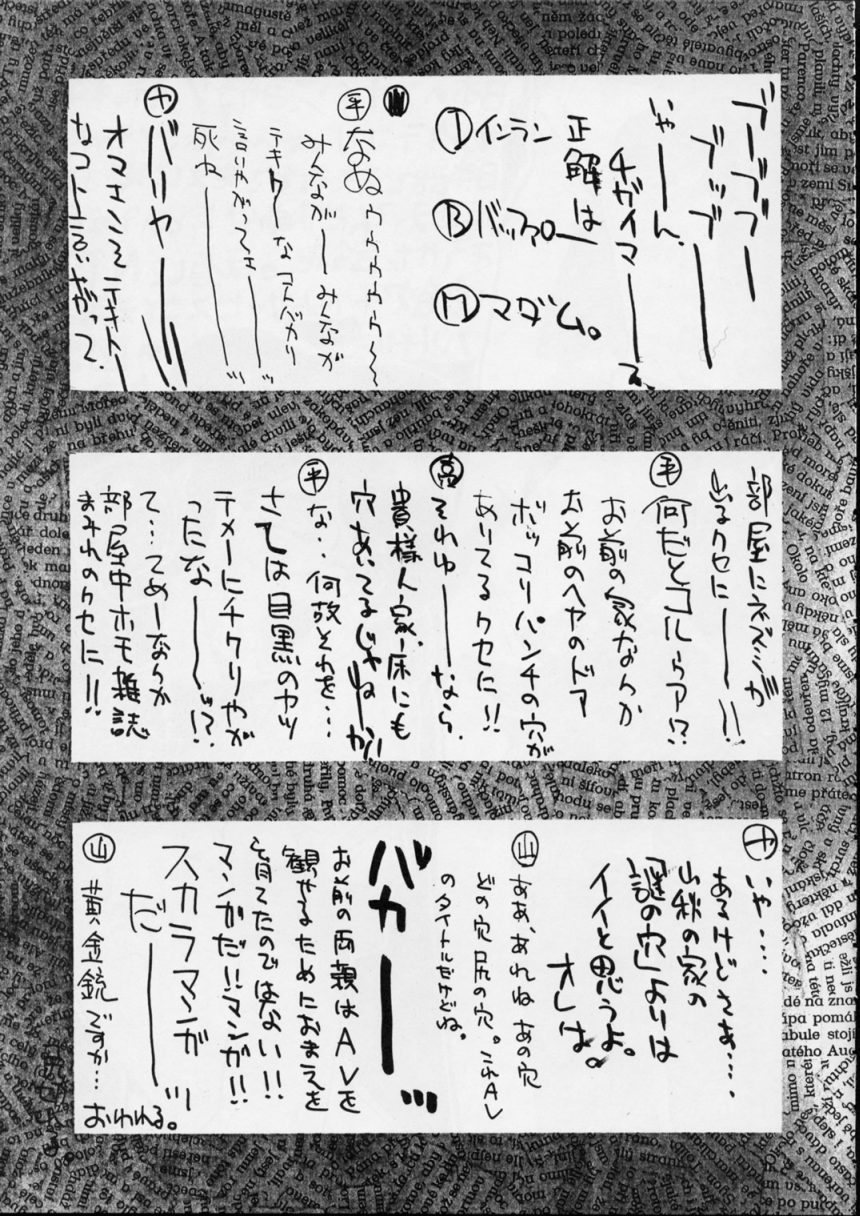 ブーブブー
ブッブーー
いやーーん、
チガイマーーーす、
正解は
Ⓘインラン
Ⓑバッファロー
Ⓜマダム。
㊥なぬゥゥゥゥゥゥ〜〜
みんながーみんなが
テキトーなコトバカリ
言いやがってェーーー!!
死ねーーーー!!
ヤ バリヤーーー!!
オマエこそテキトー
なコト言いやがって、
部屋にネズミが
いるクセにーーー!!
平 何だとコルァア!?
お前の家なんか
お前のヘヤのドア
ボッコリパンチの穴が
ありてるクセに!!
高 そわゆーーなら、
貴様人家、床にも
穴あいてるじゃねーか!!
平 な‥何故それを…
さては目黒のヤツ
テメーにチクりやが
ったなーーー!?
て…てめーなんか
部屋中ホモ雑誌
まみれのクセに!!
ヤ いや‥‥
あるけどさぁ‥‥、
山秋の家の
「謎の穴」よりは
イイと思うよ。
オレは。
山 ああ、あれね あの穴
どの穴 尻の穴。これAV
のタイトルだけどね。
バカーーー!!!
お前の両親はAVを
観せるためにおまえを
育てたのではない!!
マンガだ!!マンガ!!
スカラマンガ
だーーー!!!
山 黄金銃ですか…
おわれる。